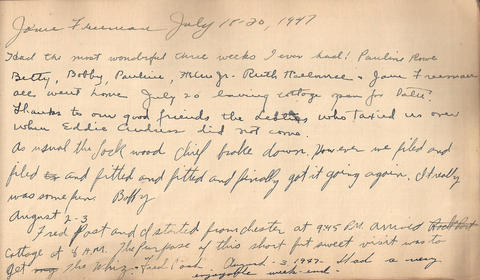 Janie Freeman July 18-20, 1947
Had the most wonderful three weeks I ever had! Pauline Rowe
Betty, Bobby, Pauline, Mrs Jr. Ruth + Jane Freeman
all went home July 20 leaving cottage open for Pattie.
Thanks to our good friends the who taxied us over
when Eddie did not come.
As usual the Lockwood chief broke down, however we filed and
filed and fitted and fitted and finally got it going again. It really
was some fun. Bobby
August 2-3
Fred Post and I started from chester at 9:45 P.M. arrived
Cottage at ½ A.M. The purpose of this short but sweet visit was to
get the Whiz. Fred Post August - 3, 1947. Had a very
enjoyable week-end.